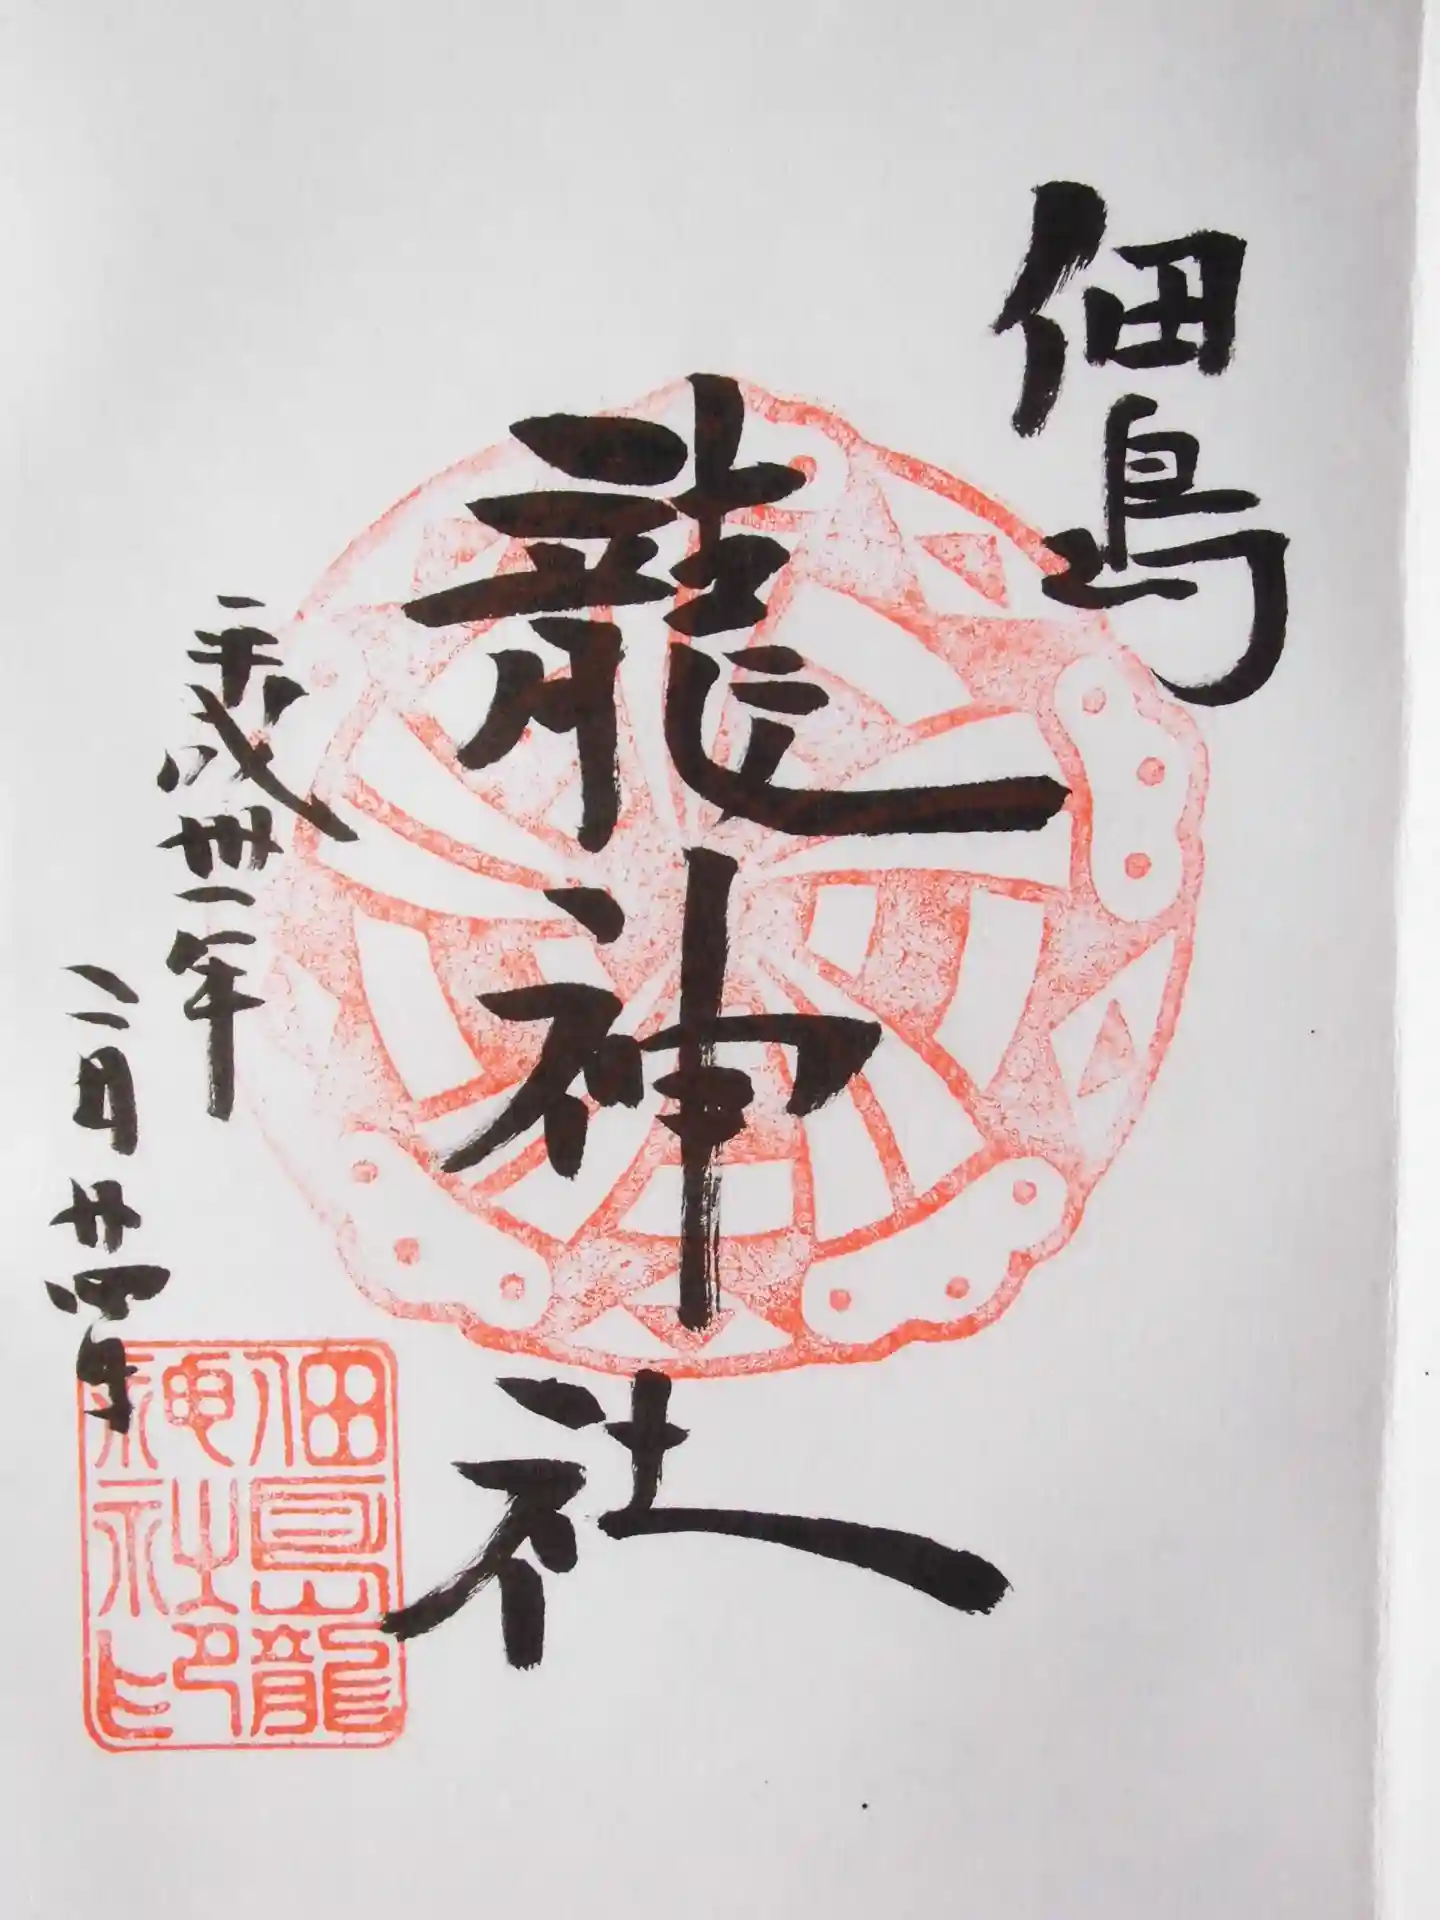 佃島
龍神社
平成卅一年
二月廿四日
佃島龍
神社印